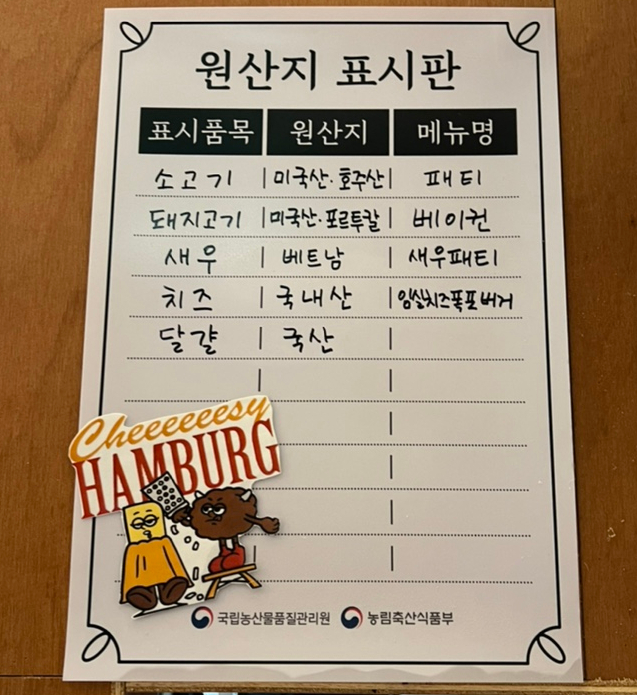 원산지 표시판
표시품목 원산지 메뉴명
소고기 미국산·호주산 패티
돼지고기 미국산·포르투갈 베이컨
새우 베트남 새우패티
치즈 국내산 임실치즈폭포버거
달걀 국산
Cheeeeeesy
HAMBURG
국립농산물품질관리원 농림축산식품부